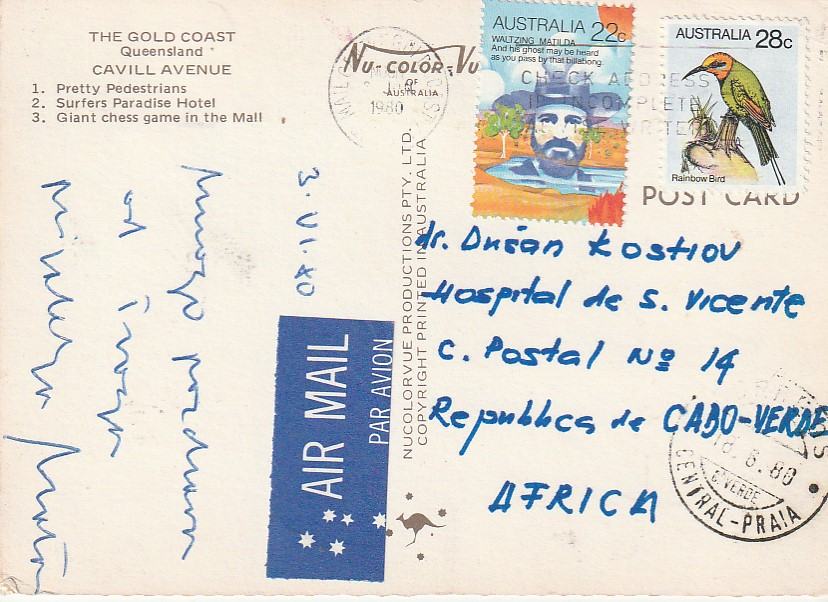 THE GOLD COAST
Queensland
CAVILL AVENUE
1. Pretty Pedestrians
2. Surfers Paradise Hotel
3. Giant chess game in the Mall
NU-COLOR-VU
OF
AUSTRALIA
1980
AUSTRALIA 22c
WALTZING MATILDA
And his ghost may be heard
as you pass by that billabong.
CHECK ADDRESS
IF INCOMPLETE
AUSTRALIA 28c
Rainbow Bird
POST CARD
3. VI. 80
Mnogo pozdrava
od
AIR MAIL
PAR AVION
NUCOLORVUE PRODUCTIONS PTY. LTD.
COPYRIGHT PRINTED IN AUSTRALIA
dr. Dušan Kostiov
Hospital de S. Vicente
C. Postal Nº 14
Republica de CABO-VERDE
AFRICA
8.80
C. VERDE
CENTRAL-PRAIA